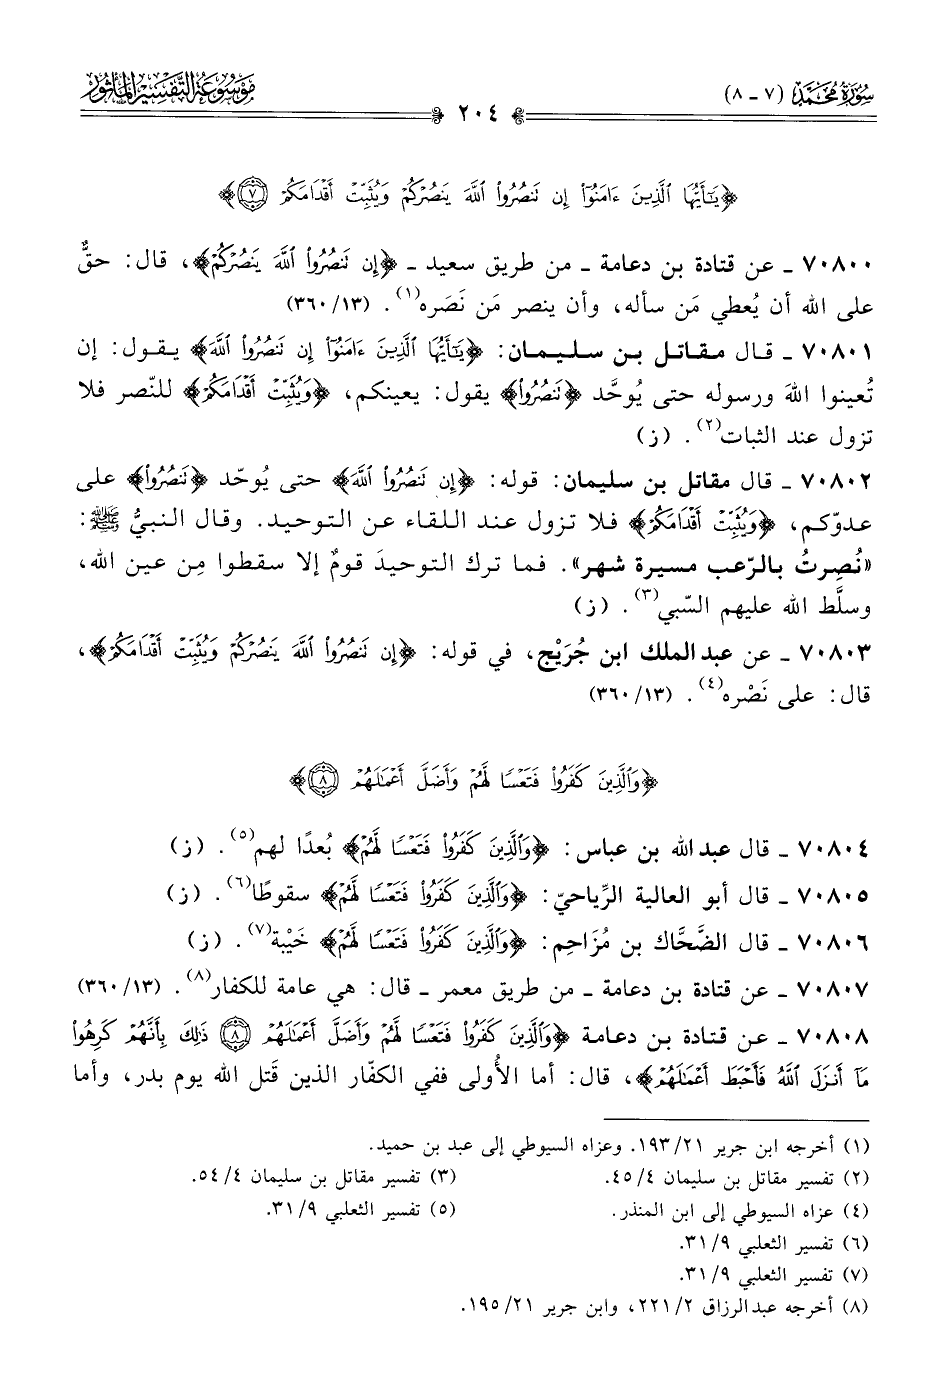 سُورَةُ مُحَمَّدٍ (٧ - ٨)
٢٠٤
مَوْسُوعَةُ التَّفْسِيرِ المَأْثُورِ
﴿يَٰٓأَيُّهَا ٱلَّذِينَ ءَامَنُوٓا۟ إِن تَنصُرُوا۟ ٱللَّهَ يَنصُرْكُمْ وَيُثَبِّتْ أَقْدَامَكُمْ ٧﴾
٧٠٨٠٠ - عن قتادة بن دعامة - من طريق سعيد - ﴿إِن تَنصُرُوا۟ ٱللَّهَ يَنصُرْكُمْ﴾، قال: حقٌّ
على الله أن يُعطي مَن سأله، وأن ينصر مَن نَصَره(١). (٣٦٠/١٣)
٧٠٨٠١ - قال مقاتل بن سليمان: ﴿يَٰٓأَيُّهَا ٱلَّذِينَ ءَامَنُوٓا۟ إِن تَنصُرُوا۟ ٱللَّهَ﴾ يقول: إن
تُعينوا اللهَ ورسوله حتى يُوحَّد ﴿تَنصُرُوا۟﴾ يقول: يعينكم، ﴿وَيُثَبِّتْ أَقْدَامَكُمْ﴾ للنّصر فلا
تزول عند الثبات(٢). (ز)
٧٠٨٠٢ - قال مقاتل بن سليمان: قوله: ﴿إِن تَنصُرُوا۟ ٱللَّهَ﴾ حتى يُوحّد ﴿تَنصُرُوا۟﴾ على
عدوّكم، ﴿وَيُثَبِّتْ أَقْدَامَكُمْ﴾ فلا تزول عند اللقاء عن التوحيد. وقال النبيُّ ﷺ:
«نُصِرتُ بالرّعب مسيرة شهر». فما ترك التوحيدَ قومٌ إلا سقطوا مِن عين الله،
وسلَّط الله عليهم السّبي(٣). (ز)
٧٠٨٠٣ - عن عبد الملك ابن جُرَيْج، في قوله: ﴿إِن تَنصُرُوا۟ ٱللَّهَ يَنصُرْكُمْ وَيُثَبِّتْ أَقْدَامَكُمْ﴾،
قال: على نَصْره(٤). (٣٦٠/١٣)
﴿وَٱلَّذِينَ كَفَرُوا۟ فَتَعْسًا لَّهُمْ وَأَضَلَّ أَعْمَٰلَهُمْ ٨﴾
٧٠٨٠٤ - قال عبد الله بن عباس: ﴿وَٱلَّذِينَ كَفَرُوا۟ فَتَعْسًا لَّهُمْ﴾ بُعدًا لهم(٥). (ز)
٧٠٨٠٥ - قال أبو العالية الرِّياحيّ: ﴿وَٱلَّذِينَ كَفَرُوا۟ فَتَعْسًا لَّهُمْ﴾ سقوطًا(٦). (ز)
٧٠٨٠٦ - قال الضَّحَّاك بن مُزَاحِم: ﴿وَٱلَّذِينَ كَفَرُوا۟ فَتَعْسًا لَّهُمْ﴾ خَيْبة(٧). (ز)
٧٠٨٠٧ - عن قتادة بن دعامة - من طريق معمر - قال: هي عامة للكفار(٨). (٣٦٠/١٣)
٧٠٨٠٨ - عن قتادة بن دعامة ﴿وَٱلَّذِينَ كَفَرُوا۟ فَتَعْسًا لَّهُمْ وَأَضَلَّ أَعْمَٰلَهُمْ ٨ ذَٰلِكَ بِأَنَّهُمْ كَرِهُوا۟
مَآ أَنزَلَ ٱللَّهُ فَأَحْبَطَ أَعْمَٰلَهُمْ﴾، قال: أما الأُولى ففي الكفّار الذين قَتل الله يوم بدر، وأما
(١) أخرجه ابن جرير ١٩٣/٢١. وعزاه السيوطي إلى عبد بن حميد.
(٢) تفسير مقاتل بن سليمان ٤٥/٤. (٣) تفسير مقاتل بن سليمان ٥٤/٤.
(٤) عزاه السيوطي إلى ابن المنذر. (٥) تفسير الثعلبي ٣١/٩.
(٦) تفسير الثعلبي ٣١/٩.
(٧) تفسير الثعلبي ٣١/٩.
(٨) أخرجه عبد الرزاق ٢٢١/٢، وابن جرير ١٩٥/٢١.